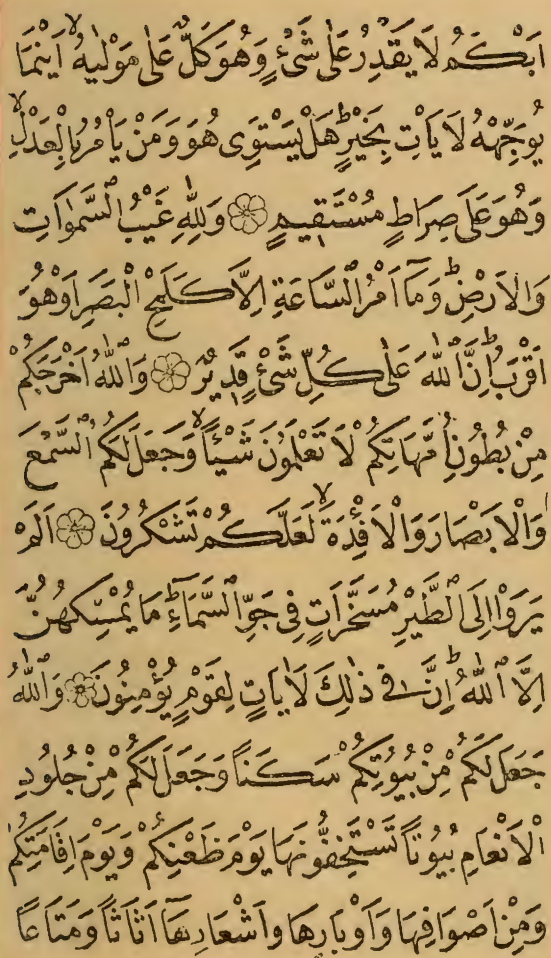 اَبْكَمُ لَا يَقْدِرُ عَلٰى شَىْءٍ وَهُوَ كَلٌّ عَلٰى مَوْلٰيهُۙ اَيْنَمَا
يُوَجِّهْهُ لَا يَأْتِ بِخَيْرٍۜ هَلْ يَسْتَوٖى هُوَ وَمَنْ يَأْمُرُ بِالْعَدْلِۙ
وَهُوَ عَلٰى صِرَاطٍ مُسْتَقٖيمٍ ۝ وَلِلّٰهِ غَيْبُ السَّمٰوَاتِ
وَالْاَرْضِۜ وَمَٓا اَمْرُ السَّاعَةِ اِلَّا كَلَمْحِ الْبَصَرِ اَوْ هُوَ
اَقْرَبُۜ اِنَّ اللّٰهَ عَلٰى كُلِّ شَىْءٍ قَدٖيرٌ ۝ وَاللّٰهُ اَخْرَجَكُمْ
مِنْ بُطُونِ اُمَّهَاتِكُمْ لَا تَعْلَمُونَ شَيْـًٔاۙ وَجَعَلَ لَكُمُ السَّمْعَ
وَالْاَبْصَارَ وَالْاَفْـِٔدَةَۙ لَعَلَّكُمْ تَشْكُرُونَ ۝ اَلَمْ
يَرَوْا اِلَى الطَّيْرِ مُسَخَّرَاتٍ فٖى جَوِّ السَّمَٓاءِۜ مَا يُمْسِكُهُنَّ
اِلَّا اللّٰهُۜ اِنَّ فٖى ذٰلِكَ لَاٰيَاتٍ لِقَوْمٍ يُؤْمِنُونَ ۝ وَاللّٰهُ
جَعَلَ لَكُمْ مِنْ بُيُوتِكُمْ سَكَنًا وَجَعَلَ لَكُمْ مِنْ جُلُودِ
الْاَنْعَامِ بُيُوتًا تَسْتَخِفُّونَهَا يَوْمَ ظَعْنِكُمْ وَيَوْمَ اِقَامَتِكُمْ
وَمِنْ اَصْوَافِهَا وَاَوْبَارِهَا وَاَشْعَارِهَٓا اَثَاثًا وَمَتَاعًا